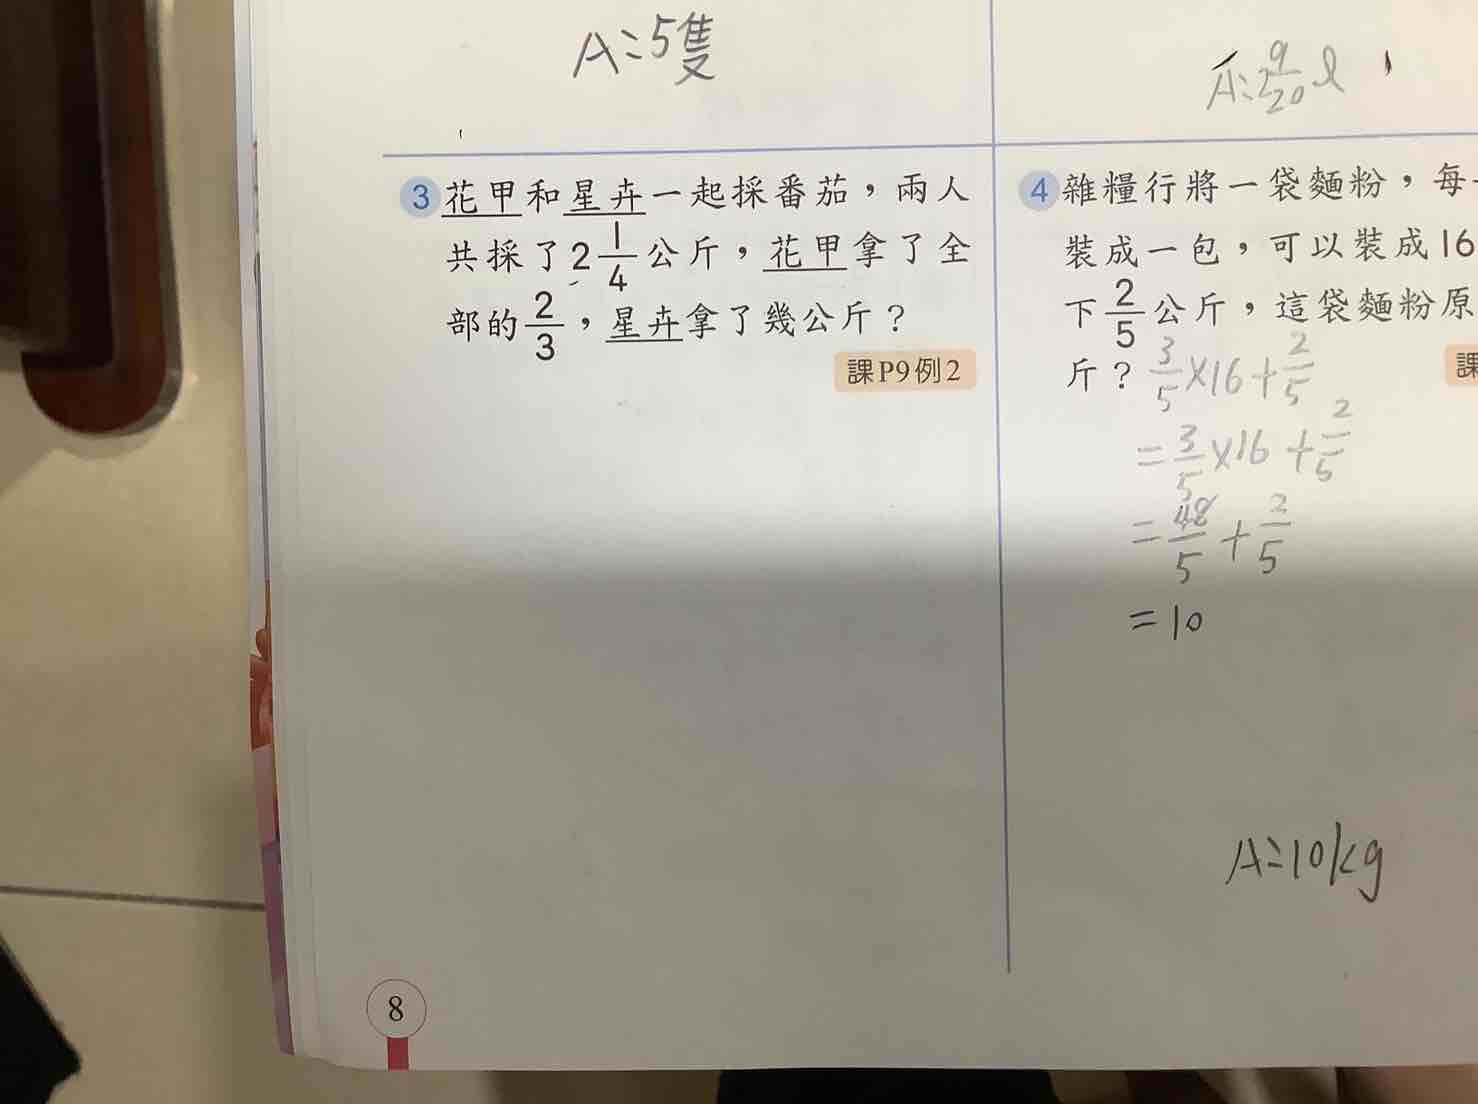 A:5隻
A:2 9/20 l
3 花甲和星卉一起採番茄,兩人
共採了2 1/4 公斤,花甲拿了全
部的 2/3,星卉拿了幾公斤?
課P9例2
4 雜糧行將一袋麵粉,每
裝成一包,可以裝成16
下 2/5 公斤,這袋麵粉原
課
斤? 3/5 ×16+ 2/5
= 3/5 ×16 + 2/5
= 48/5 + 2/5
=10
A:10kg
8